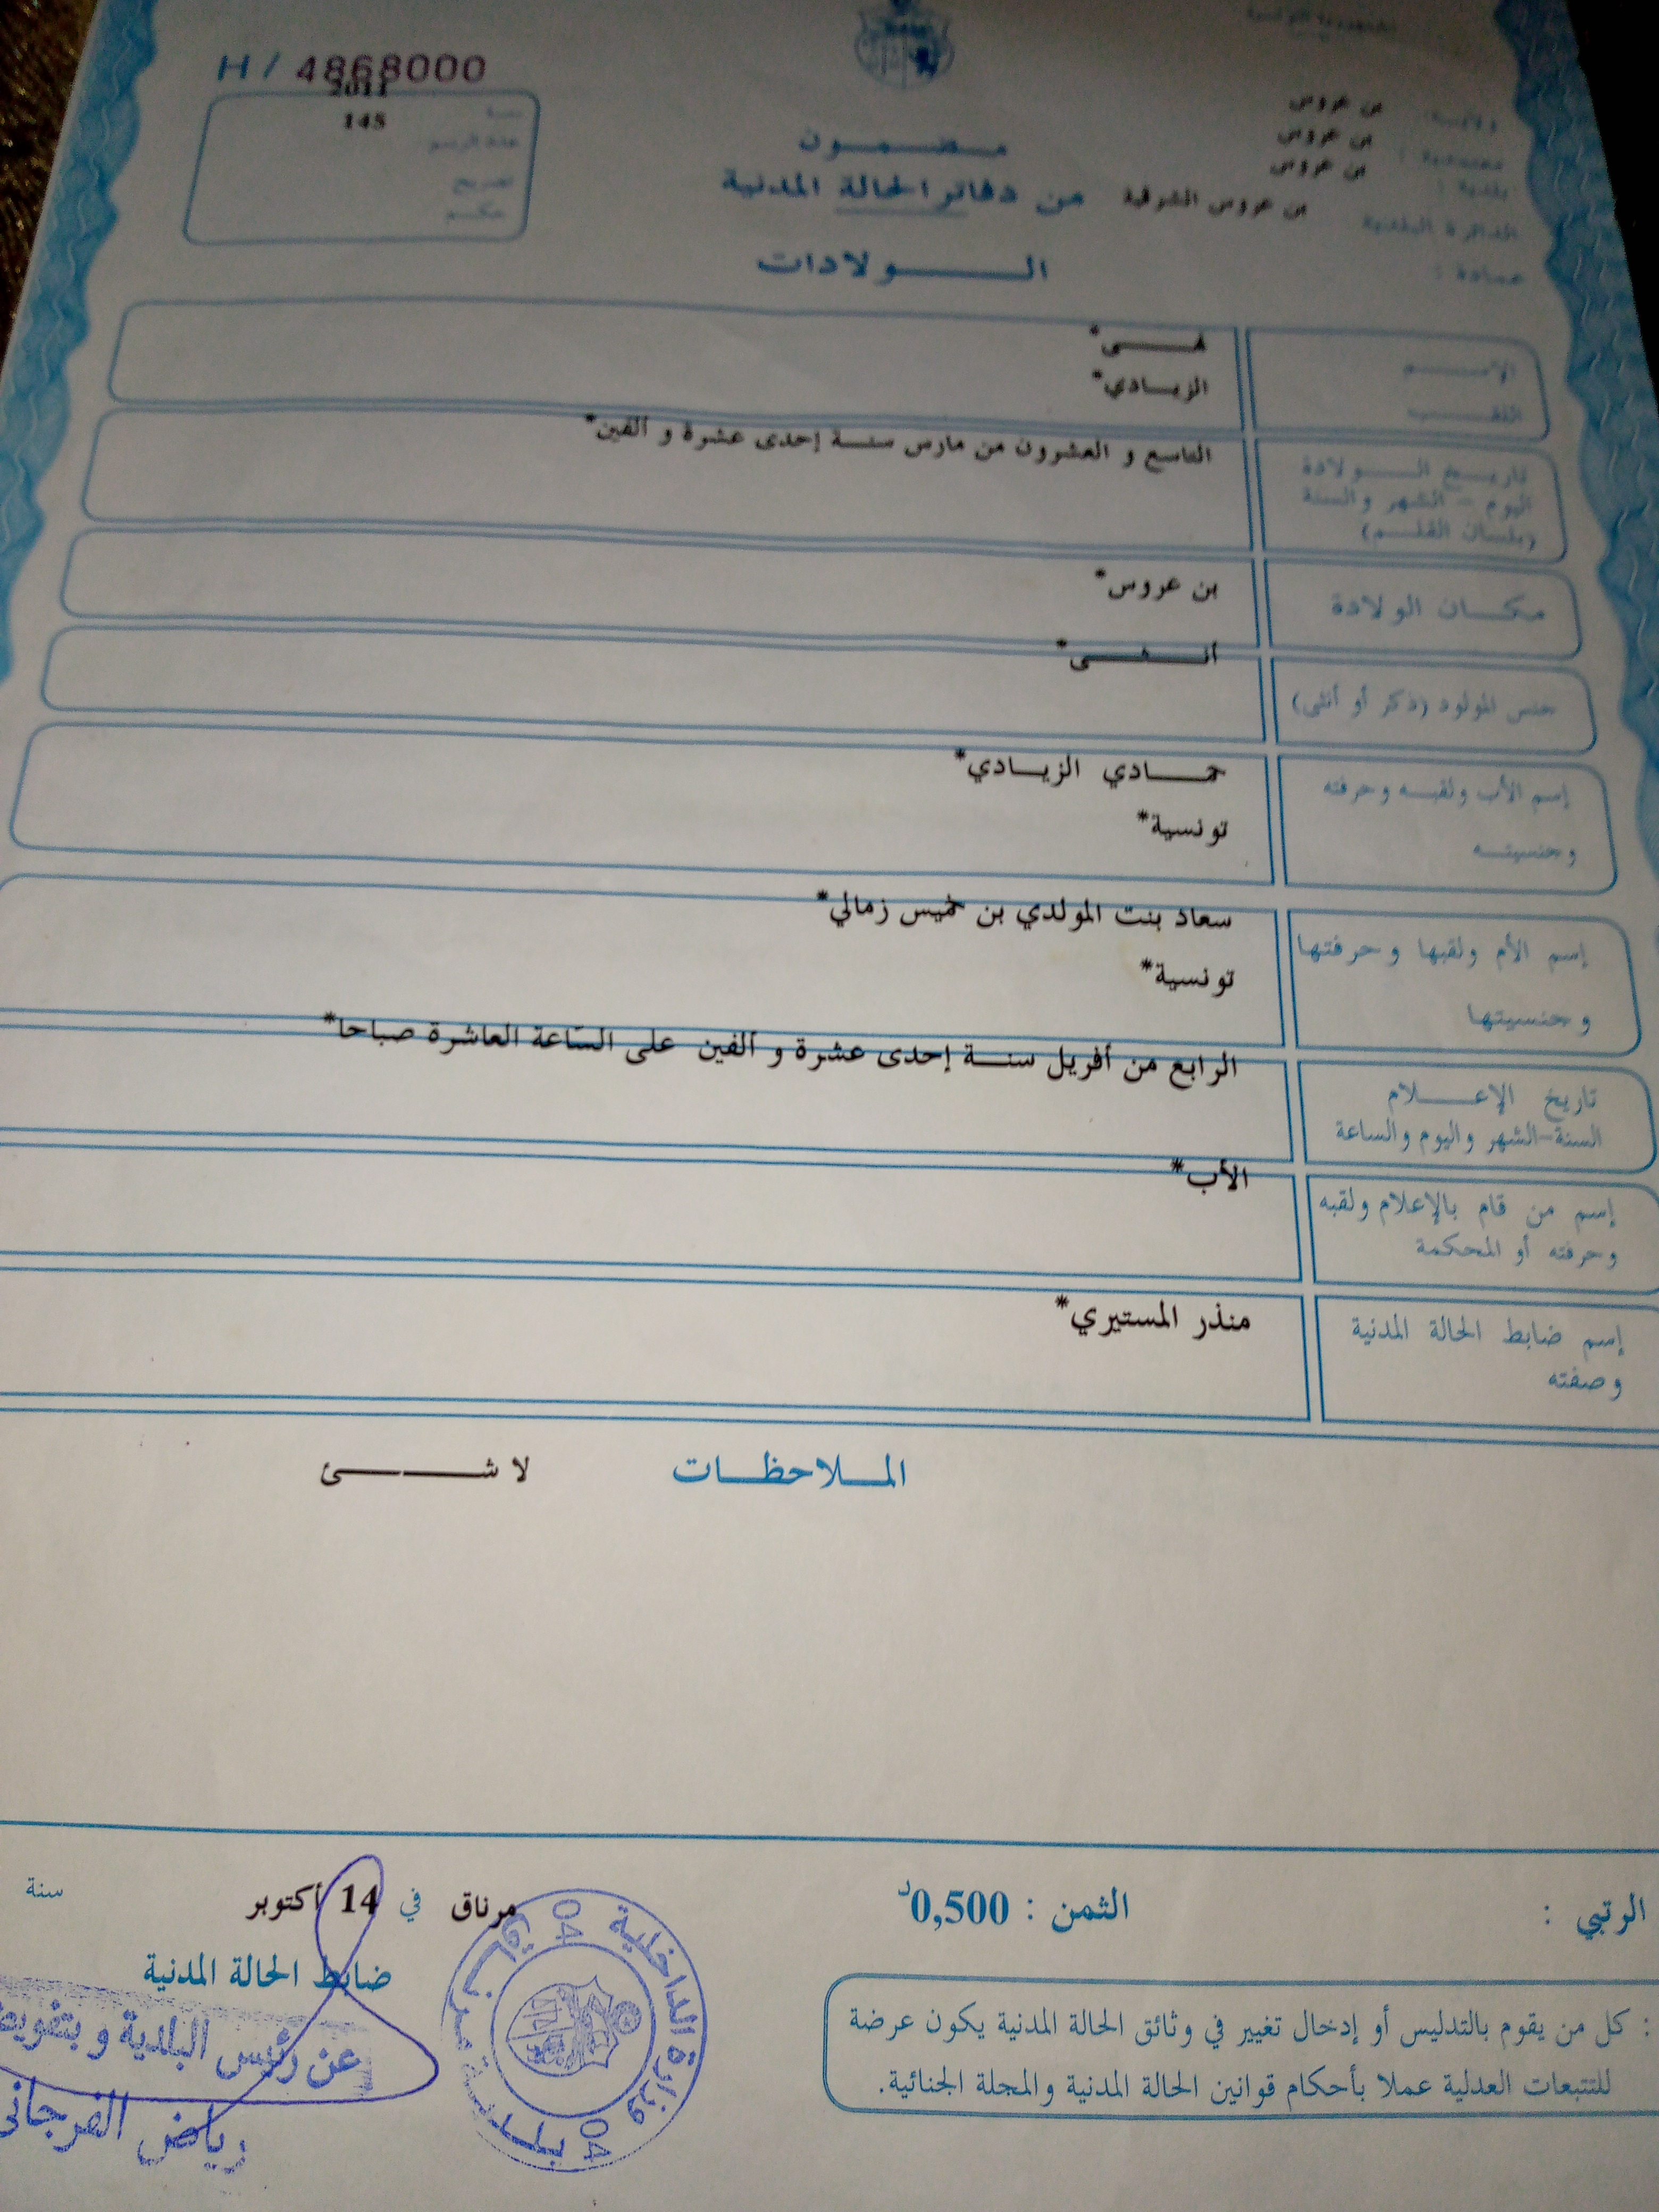 الجمهورية التونسية
H / 4868000
ولاية: بن عروس
معتمدية: بن عروس
بلدية: بن عروس
الدائرة البلدية بن عروس الشرقية
عمادة:
سنة 2011
عدد الرسم 145
تصريح
حكم
مضمون
من دفاتر الحالة المدنية
الولادات
الإسم
الزيادي*
اللقب
تاريخ الولادة
اليوم - الشهر والسنة
(بلسان القلم)
التاسع و العشرون من مارس سنة إحدى عشرة و ألفين*
مكان الولادة
بن عروس*
جنس المولود (ذكر أو أنثى)
أنثى*
إسم الأب ولقبه وحرفته
وجنسيته
حمادي الزيادي*
تونسية*
إسم الأم ولقبها وحرفتها
وجنسيتها
سعاد بنت المولدي بن خميس زمالي*
تونسية*
تاريخ الإعلام
السنة-الشهر واليوم والساعة
الرابع من أفريل سنة إحدى عشرة و ألفين على الساعة العاشرة صباحا*
إسم من قام بالإعلام ولقبه
وحرفته أو المحكمة
الأب*
إسم ضابط الحالة المدنية
وصفته
منذر المستيري*
الملاحظات لا شئ
الرتبي :
الثمن : 0,500د
مرناق في 14 أكتوبر سنة
ضابط الحالة المدنية
عن رئيس البلدية و بتفويض
رياض الفرجاني
وزارة الداخلية 04 بلدية مرناق 04
: كل من يقوم بالتدليس أو إدخال تغيير في وثائق الحالة المدنية يكون عرضة
للتتبعات العدلية عملا بأحكام قوانين الحالة المدنية والمجلة الجنائية.